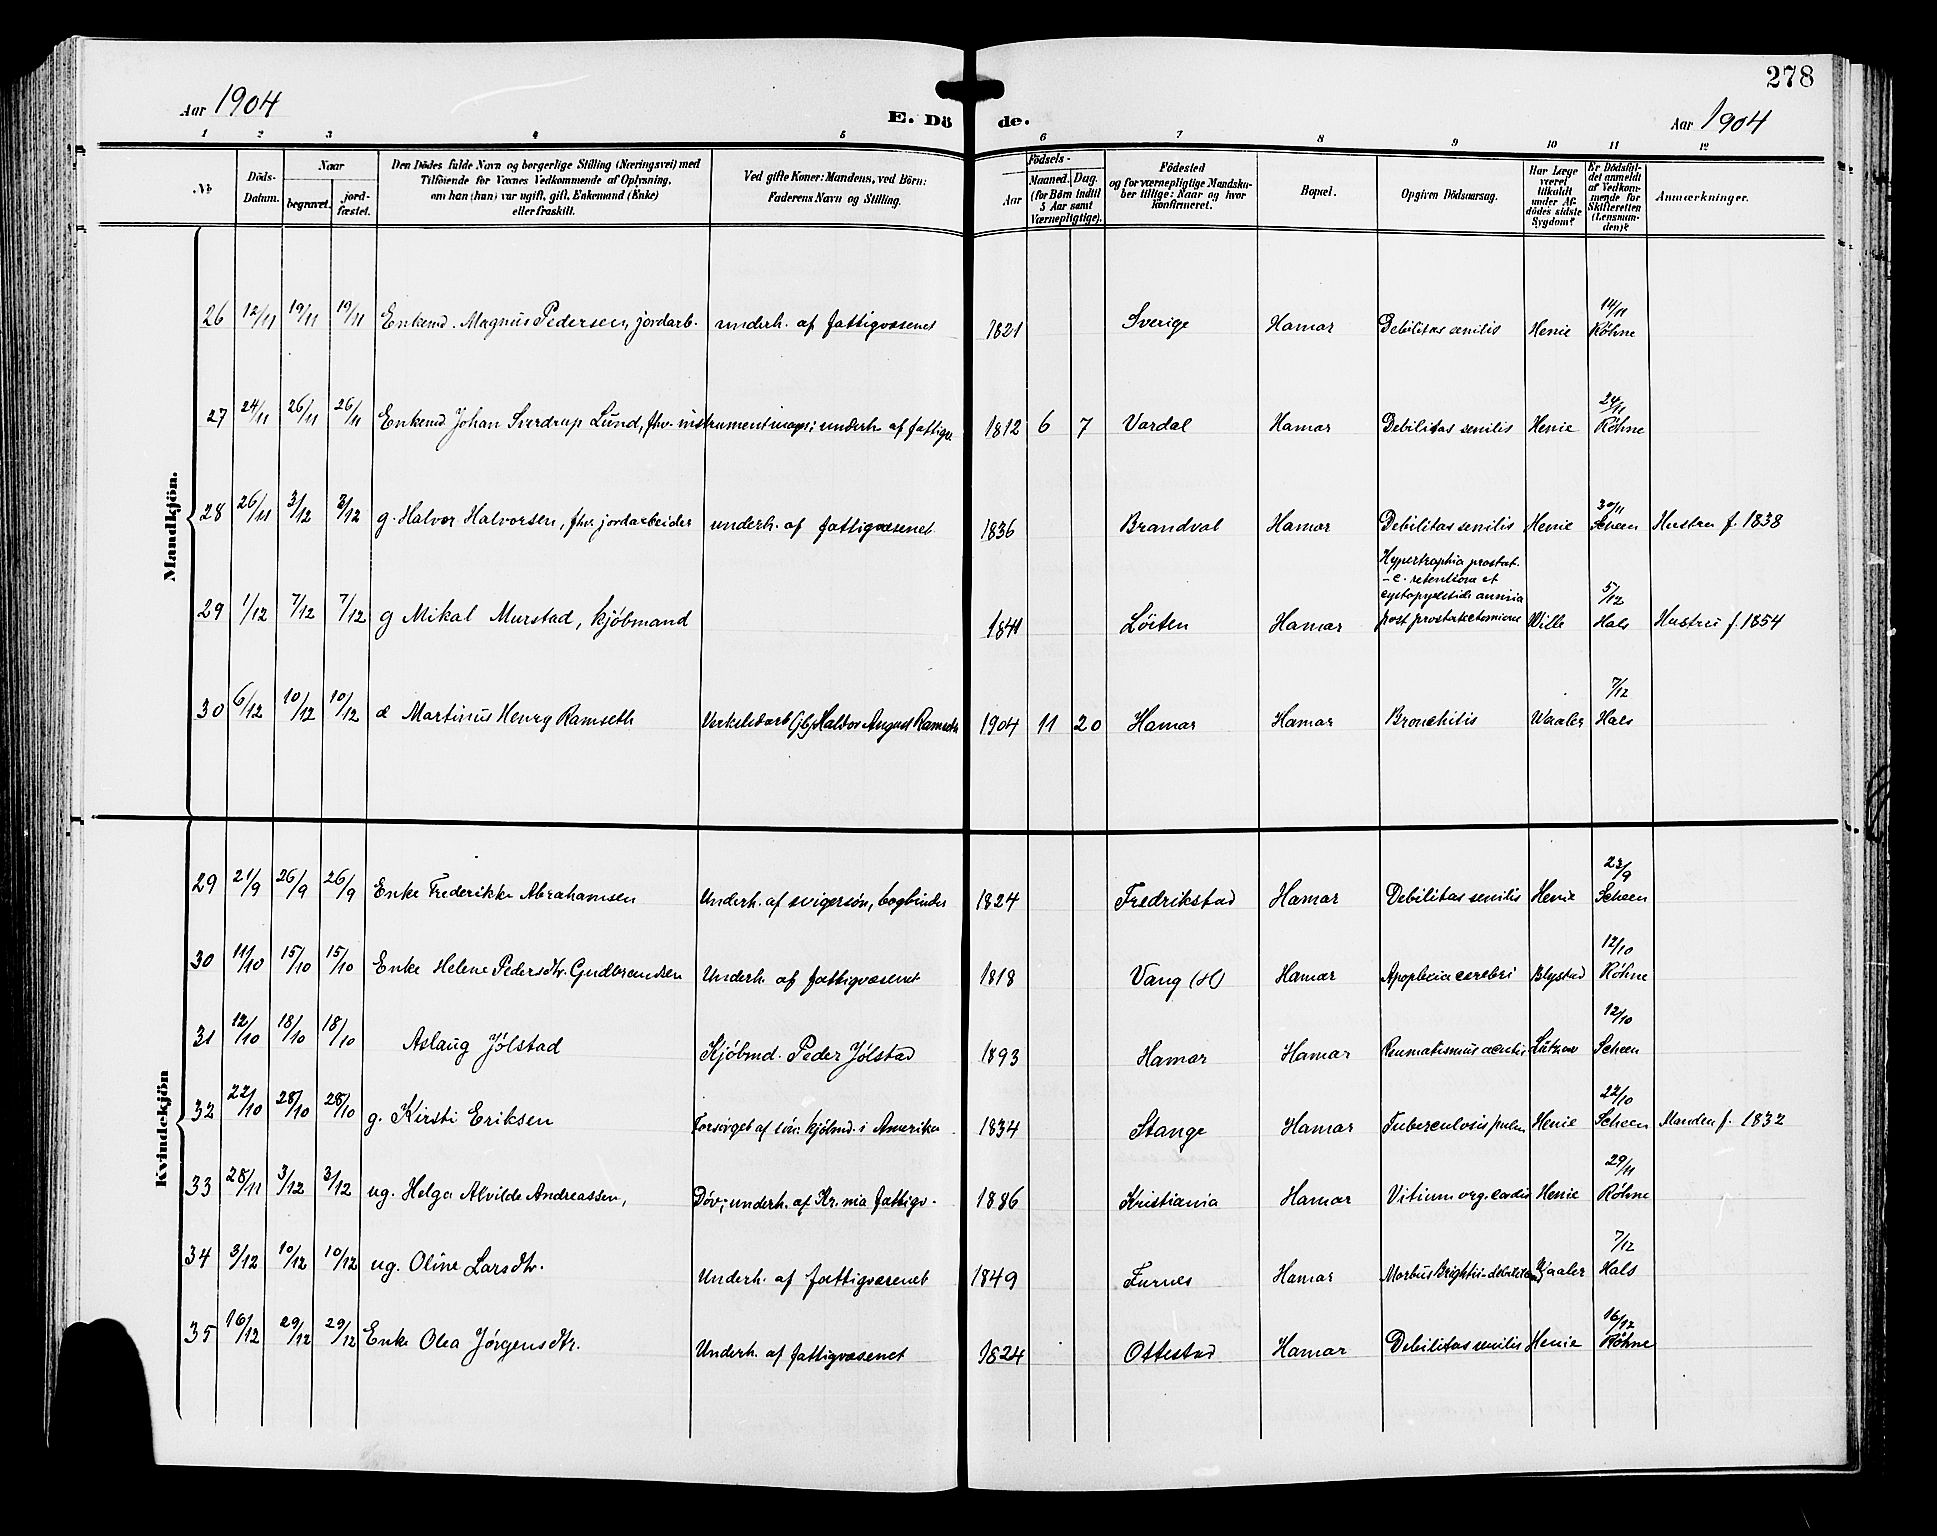 278
Aar 1904
E. Dö de.
Aar 1904
1 2 3 4 5 6 7 8 9 10 11 12
No.
Döds-Datum.
Naar
begravet.
jord-fæstet.
Den Dödes fulde Navn og borgerlige Stilling (Næringsvei) med
Tilföiende for Vævnes Vedkommende af Oplysning,
om han (hun) var ugift, gift, Enkemand (Enke)
eller fraskilt.
Ved gifte Koner: Mandens, ved Börn:
Faderens Navn og Stilling.
Födsels-
Aar
Maaned. Dag.
(for Børn indtil
5 Aar samt
Værnepligtige).
Födested
og for værnepligtige Mandska-
ber tillige: Naar og hvor
konfirmeret.
Bopæl.
Opgiven Dödsaarsag.
Har Læge
været
tilkaldt
under Af-
dødes sidste
Sygdom?
Er Dödsfal-
det anmeldt
af Vedkom-
mende for
Skifteretten
(Lensman-
den)?
Anmærkninger.
Mandkjön.
26 12/11 19/11 19/11 Enkemd. Magnus Pedersen, jordarb. underh. af fattigvæsenet 1821 Sverige Hamar Debilitas senilis Henie 14/11 Röhne
27 24/11 26/11 26/11 Enkemd Johan Sverdrup Lund, fhv. instrumentmager; underh. af fattigv. 1812 6 7 Vardal Hamar Debilitas senilis Henie 24/11 Röhne
28 26/11 3/12 3/12 g. Halvor Halvorsen, fhv. jordarbeider underh. af fattigvæsenet 1836 Brandval Hamar Debilitas senilis Henie 30/11 Scheen Hustru f. 1838
29 1/12 7/12 7/12 g Mikal Murstad, kjøbmand 1841 Løiten Hamar Hypertrophia prostat.
-c. retentione et
post prostatectomiam Wille 5/12 Hals Hustru f. 1854
30 6/12 10/12 10/12 d Martinus Henry Ramseth Halvor August Ramseth 1904 11 20 Hamar Hamar Bronchitis Waaler 7/12 Hals
Kvindekjön
29 21/9 26/9 26/9 Enke Frederikke Abrahamsen Underh. af svigersøn, bogbinder 1824 Fredrikstad Hamar Debilitas senilis Henie 23/9 Scheen
30 11/10 15/10 15/10 Enke Helene Pedersdtr. Gudbrandsen Underh. af fattigvæsenet 1818 Vang (H) Hamar Apoplexia cerebri Blystad 12/10 Röhne
31 12/10 18/10 18/10 Aslaug Jølstad Kjøbmd. Peder Jølstad 1893 Hamar Hamar Reumatismus acutus Lützow 12/10 Scheen
32 22/10 28/10 28/10 g. Kirsti Eriksen Forsørget af søn: kjøbmd. i Amerika 1834 Stange Hamar Tuberculosis pulm Henie 22/10 Scheen Manden f. 1832
33 28/11 3/12 3/12 ug. Helga Alvilde Andreassen, Døv; underh. af Kr.nia fattigv. 1886 Kristiania Hamar Vitium org. cordis Henie 29/11 Röhne
34 3/12 10/12 10/12 ug. Oline Larsdtr. Underh. af fattigvæsenet 1849 Furnes Hamar Morbus Brightii - debilitas Waaler 7/12 Hals
35 16/12 29/12 29/12 Enke Olea Jørgensdtr. Underh. af fattigvæsenet 1824 Ottestad Hamar Debilitas senilis Henie 16/12 Röhne